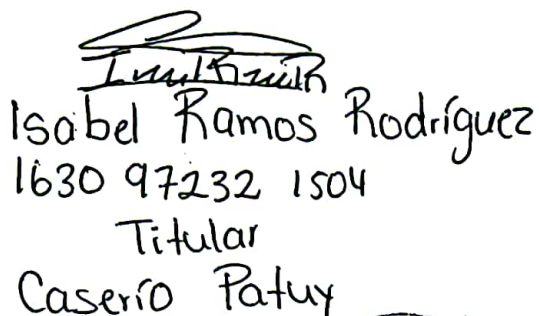 Isabel Ramos Rodríguez
1630 97232 1504
Titular
Caserío Patuy